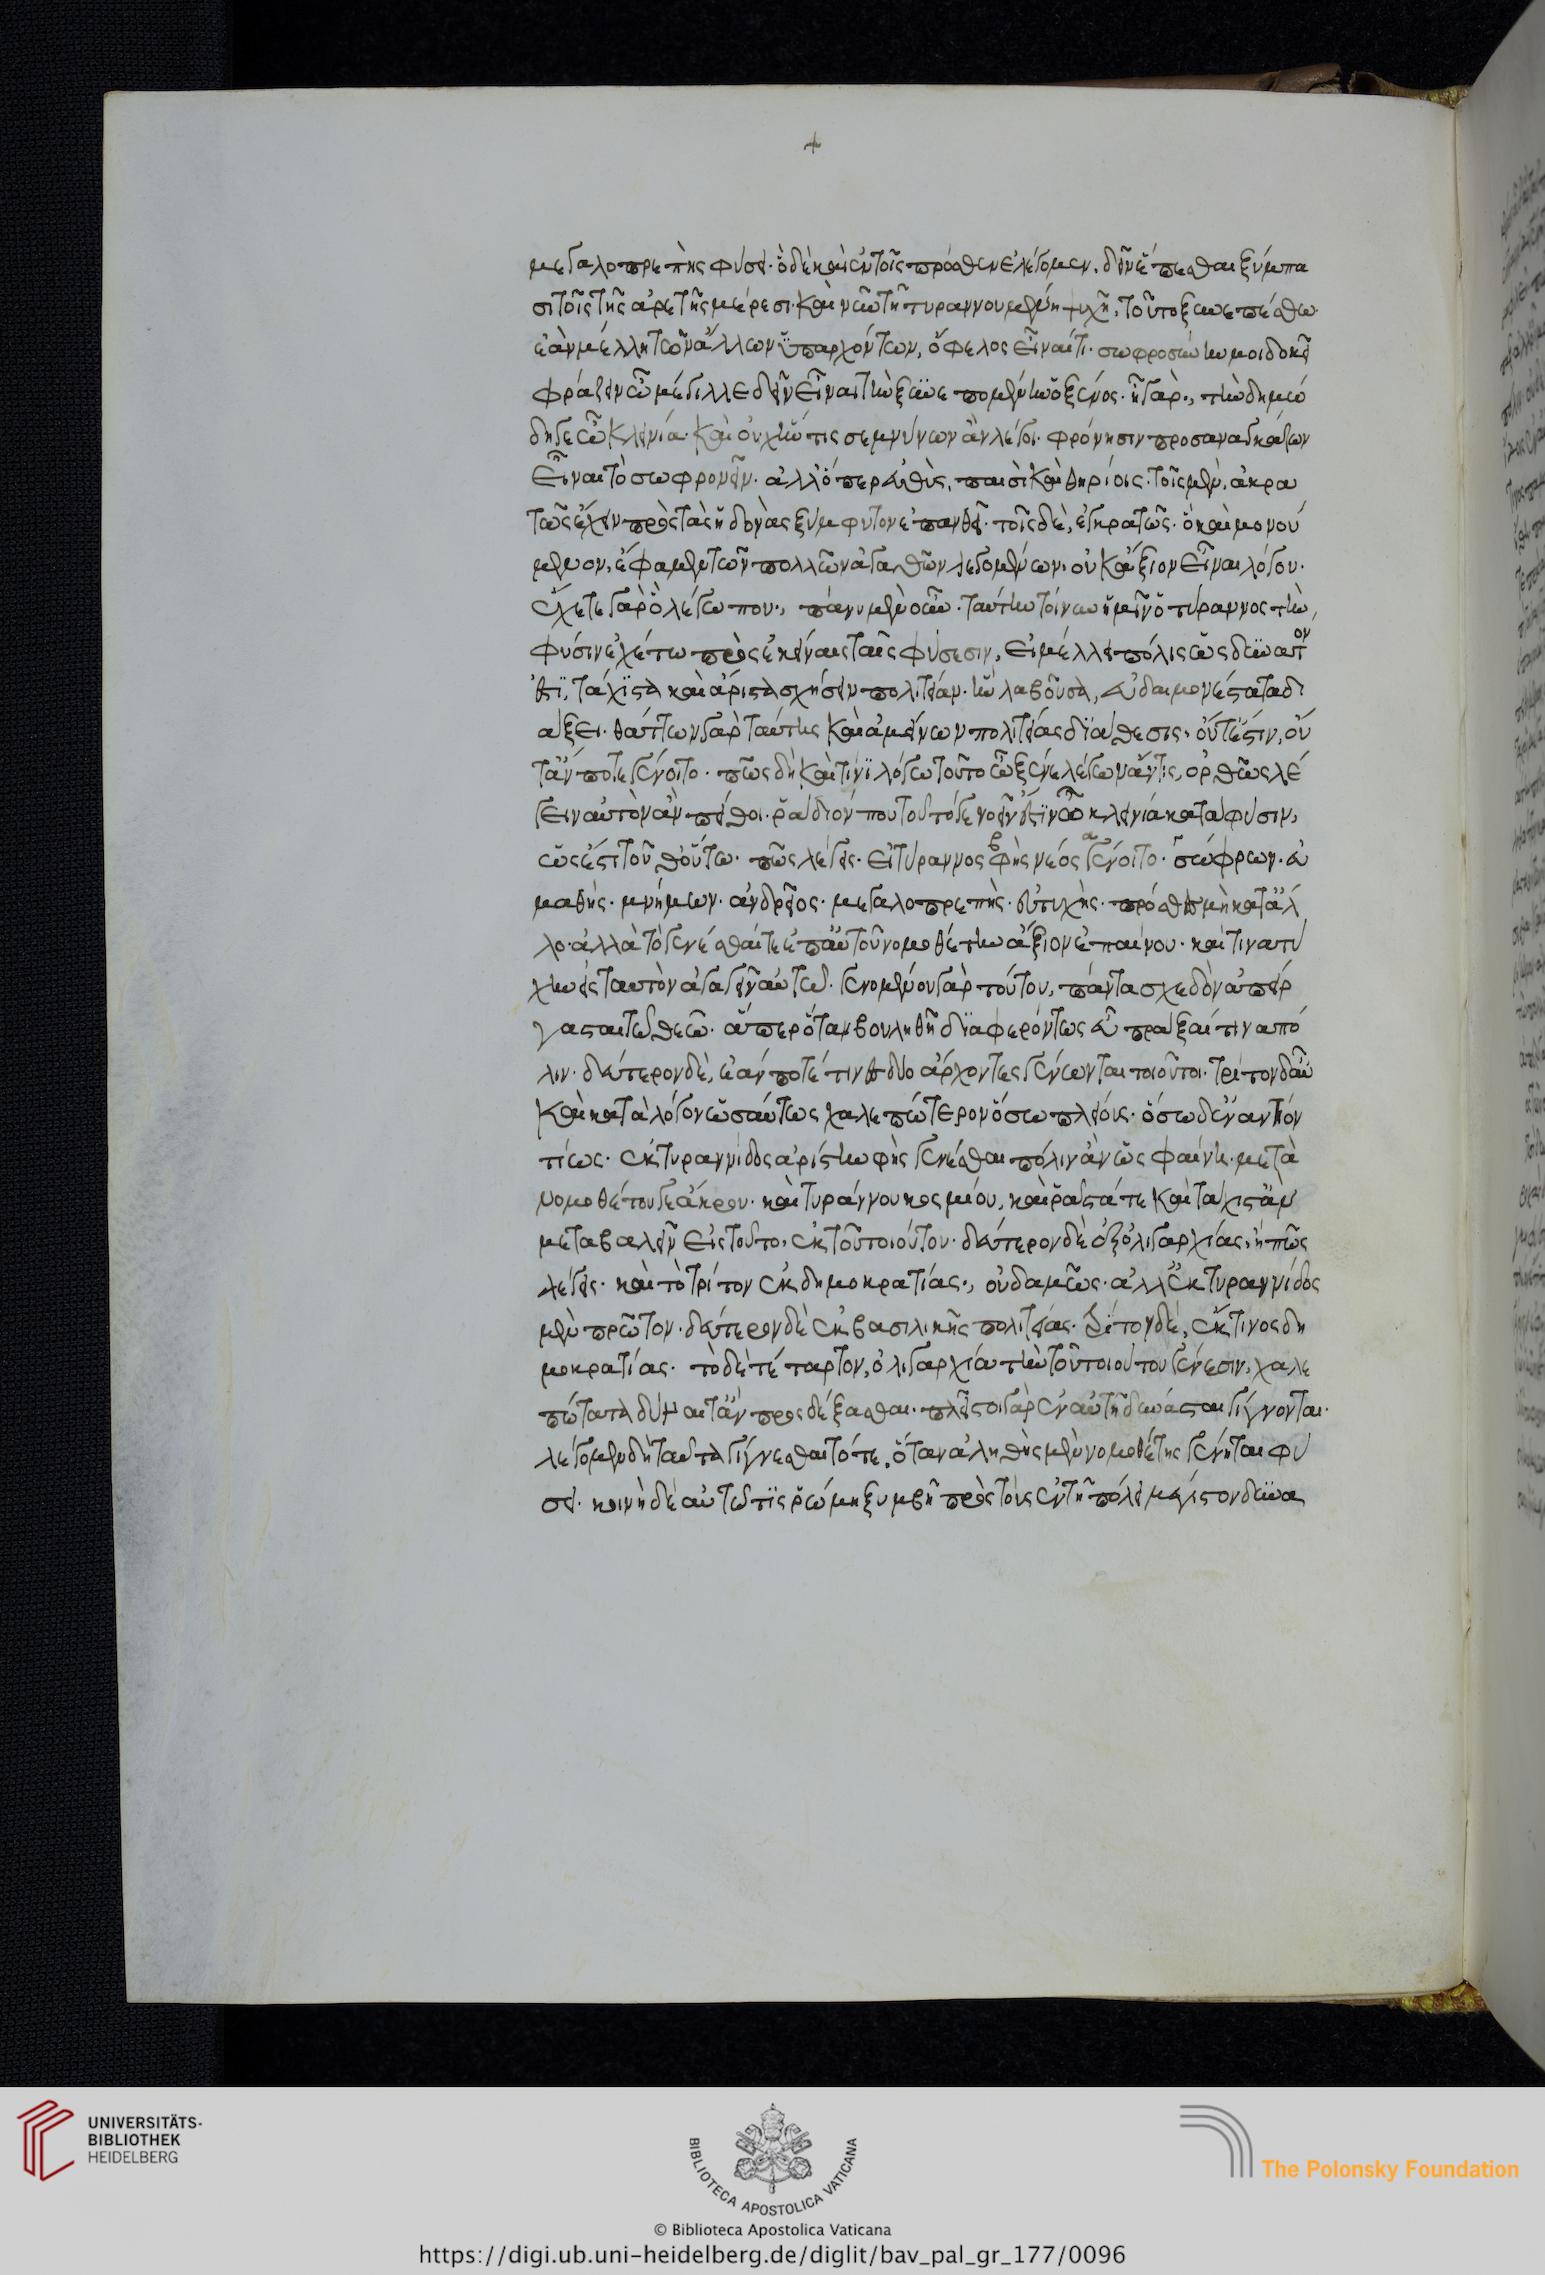 +
μεγαλοπρεπὴς φύσει· ὃ δὲ καὶ ἐν τοῖς πρόσθεν ἐλέγομεν. δεῖν ἕπεσθαι ξύμπα
σι τοῖς τῆς ἀρετῆς μέρεσι· καὶ νῦν τῆ τυραννουμένη ψυχῆ, τοῦτο ξυνεπέσθω.
ἐὰν μέλλη τῶν ἄλλων ὑπαρχόντων, ὄφελος εἶναί τι· σωφροσύνην μοι δοκεῖ
φράζειν ὦ μέγιλλε δεῖν εἶναι τὴν ξυνεπομένην ὁ ξένος· ἦ γάρ., τὴν δημώ
δη γε ὦ κλεινία· καὶ οὐχ ἥν τις σεμνύνων ἂν λέγοι· φρόνησιν προσαναγκάζων
εἶναι τὸ σωφρονεῖν· ἀλλ' ὅπερ εὐθὺς, παισὶ καὶ θηρίοις· τοῖς μὲν, ἀκρα
τῶς ἔχειν πρὸς τὰς ἡδονὰς ξύμφυτον ἐπανθεῖ· τοῖς δὲ, ἐγκρατῶς· ὃ καὶ μονού
μενον, ἔφαμεν τῶν πολλῶν ἀγαθῶν λεγομένων. οὐκ ἄξιον εἶναι λόγου·
ἔχετε γὰρ ὃ λέγω που., πάνυ μὲν οὖν· ταύτην τοίνυν ἡμῖν ὁ τύραννος τὴν
φύσιν ἐχέτω πρὸς ἐκείναις ταῖς φύσεσιν, εἰ μέλλει πόλις ὡς δυνατὸν
ἐστι, τάχιστα καὶ ἄριστα σχήσειν πολιτείαν· ἣν λαβοῦσα, εὐδαιμονέστατα δι
άξει· θάττων γὰρ ταύτης καὶ ἀμείνων πολιτείας διάθεσις· οὔτ' ἔστιν, οὔ
τ' ἄν ποτε γένοιτο· πῶς δὴ καὶ τίνι λόγω τοῦτο ὦ ξένε λέγων ἄν τις, ὀρθῶς λέ
γειν αὑτὸν ἂν πείθοι· ῥάδιόν που τοῦτό γε νοεῖν ἐστὶν ὦ κλεινία κατὰ φύσιν,
ὡς ἔστι τοῦθ' οὕτω· πῶς λέγεις· εἰ τύραννος φὴς νέος γένοιτο· σώφρων· εὐ
μαθής· μνήμων· ἀνδρεῖος· μεγαλοπρεπής· εὐτυχής· πρόσθες μὴ κατ' ἄλ
λο· ἀλλὰ τὸ γενέσθαι τε ἐπ' αὐτοῦ νομοθέτην ἄξιον ἐπαίνου· καί τινα τύ
χην εἰς ταυτὸν ἀγαγεῖν αὐτῶ· γενομένου γὰρ τούτου, πάντα σχεδὸν ἀπείρ
γασται τῶ θεῶ· ἅπερ ὅταν βουληθῆ διαφερόντως εὖ πρᾶξαί τινα πό
λιν· δεύτερον δὲ, ἐάν ποτέ τινες δύο ἄρχοντες γένωνται τοιοῦτοι· τρίτον δ' αὖ
καὶ κατὰ λόγον ὡσαύτως χαλεπώτερον ὅσω πλείους· ὅσω δ' ἐναντίον
τίως· ἐκ τυραννίδος ἀρίστην φὴς γενέσθαι πόλιν ἂν ὡς φαίνη· μετὰ
νομοθέτου γε ἄκρου· καὶ τυράννου κοσμίου, καὶ ῥᾷστά τε καὶ τάχιστ' ἂμ
μεταβαλεῖν εἰς τοῦτο, ἐκ τοῦ τοιούτου· δεύτερον δὲ ἐξ ὀλιγαρχίας, ἢ πῶς
λέγεις· καὶ τὸ τρίτον ἐκ δημοκρατίας., οὐδαμῶς· ἀλλ' ἐκ τυραννίδος
μὲν πρῶτον· δεύτερον δὲ ἐκ βασιλικῆς πολιτείας· τρίτον δὲ, ἔκ τινος δη
μοκρατίας· τὸ δὲ τέταρτον, ὀλιγαρχία τὴν τοῦ τοιούτου γένεσιν, χαλε
πώτατα δύναιτ' ἂν προσδέξασθαι· πλεῖστοι γὰρ ἐν αὐτῆ δυνάσται γίγνονται·
λέγομεν δὴ ταῦτα γίγνεσθαι τότε, ὅταν ἀληθὴς μὲν νομοθέτης γένηται φύ
σει· κοινὴ δὲ αὐτῶ τις ῥώμη ξυμβῆ πρὸς τοὺς ἐν τῆ πόλει μέγιστον δυνα
UNIVERSITÄTS-
BIBLIOTHEK
HEIDELBERG
BIBLIOTECA APOSTOLICA VATICANA
The Polonsky Foundation
© Biblioteca Apostolica Vaticana
https://digi.ub.uni-heidelberg.de/diglit/bav_pal_gr_177/0096